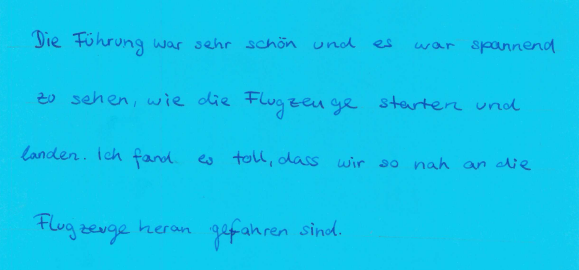 Die Führung war sehr schön und es war spannend
zu sehen, wie die Flugzeuge starten und
landen. Ich fand es toll, dass wir so nah an die
Flugzeuge heran gefahren sind.